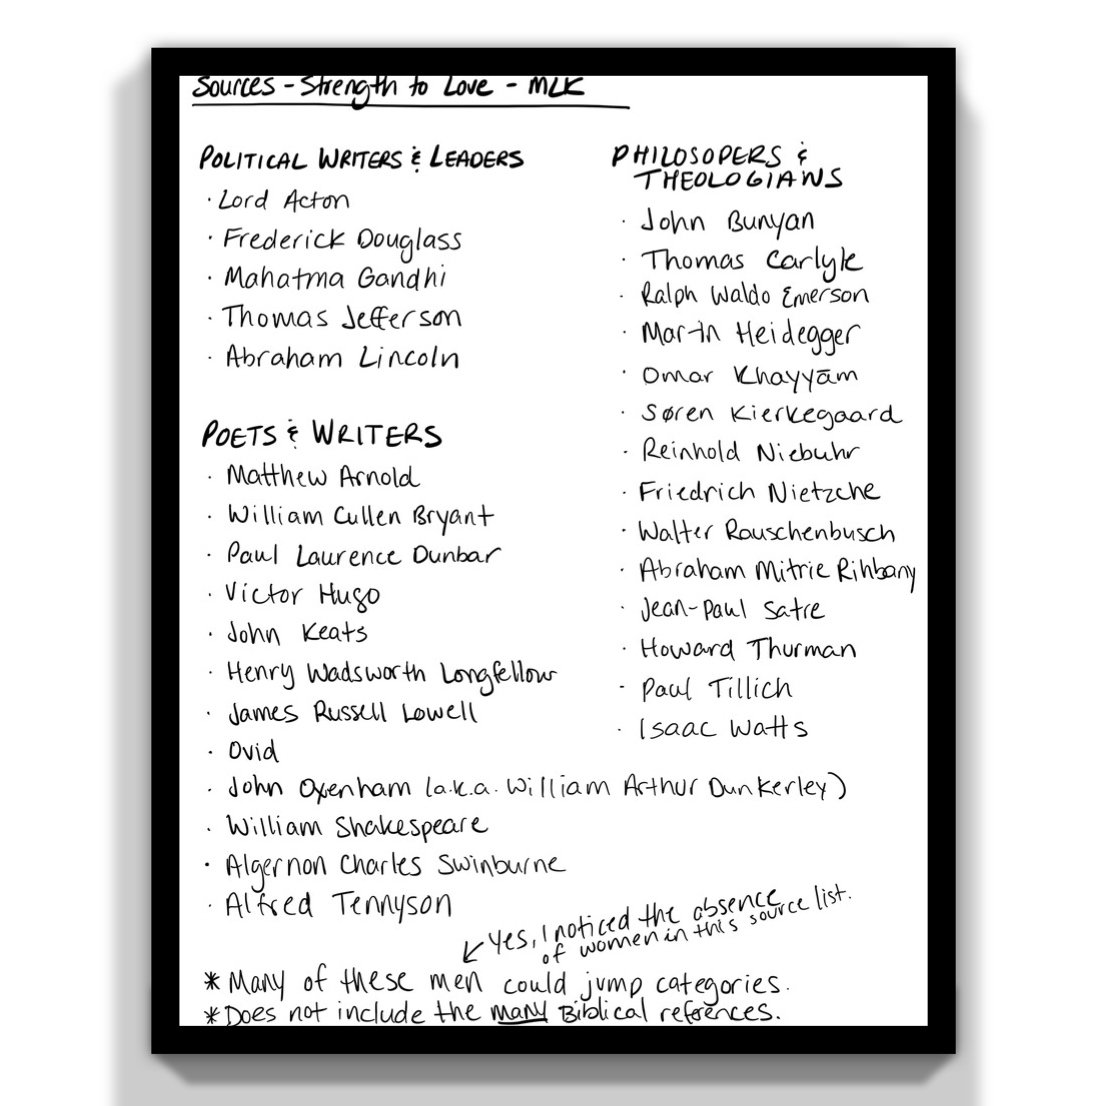 Sources - Strength to Love - MLK
POLITICAL WRITERS & LEADERS
· Lord Acton
· Frederick Douglass
· Mahatma Gandhi
· Thomas Jefferson
· Abraham Lincoln
POETS & WRITERS
· Matthew Arnold
· William Cullen Bryant
· Paul Laurence Dunbar
· Victor Hugo
· John Keats
· Henry Wadsworth Longfellow
· James Russell Lowell
· Ovid
· John Oxenham (a.k.a. William Arthur Dunkerley)
· William Shakespeare
· Algernon Charles Swinburne
· Alfred Tennyson
PHILOSOPERS &
THEOLOGIANS
· John Bunyan
· Thomas Carlyle
· Ralph Waldo Emerson
· Martin Heidegger
· Omar Khayyām
· Søren Kierkegaard
· Reinhold Niebuhr
· Friedrich Nietzche
· Walter Rauschenbusch
· Abraham Mitrie Rihbany
· Jean-Paul Satre
· Howard Thurman
· Paul Tillich
· Isaac Watts
↙ Yes, I noticed the absence
of women in this source list.
* Many of these men could jump categories.
* Does not include the many Biblical references.